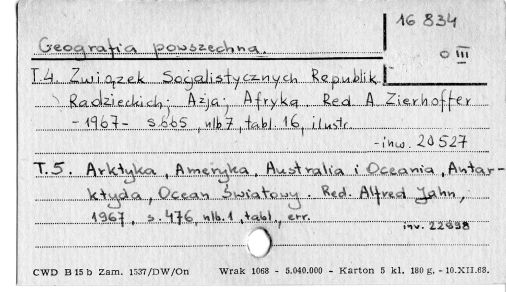 16 834
o III
Geografia powszechna.
T.4. Związek Socjalistycznych Republik
Radzieckich; Azja; Afryka Red A. Zierhoffer
-1967- s.665, nlb7, tabl. 16, ilustr.
-inw. 20527
T.5. Arktyka, Ameryka, Australia i Oceania, Antar-
ktyda, Ocean Światowy. Red. Alfred Jahn,
1967, s. 476, nlb. 1, tabl., err.
inv. 22698
CWD B 15 b Zam. 1537/DW/On Wrak 1068 - 5.040.000 - Karton 5 kl. 180 g. - 10.XII.68.